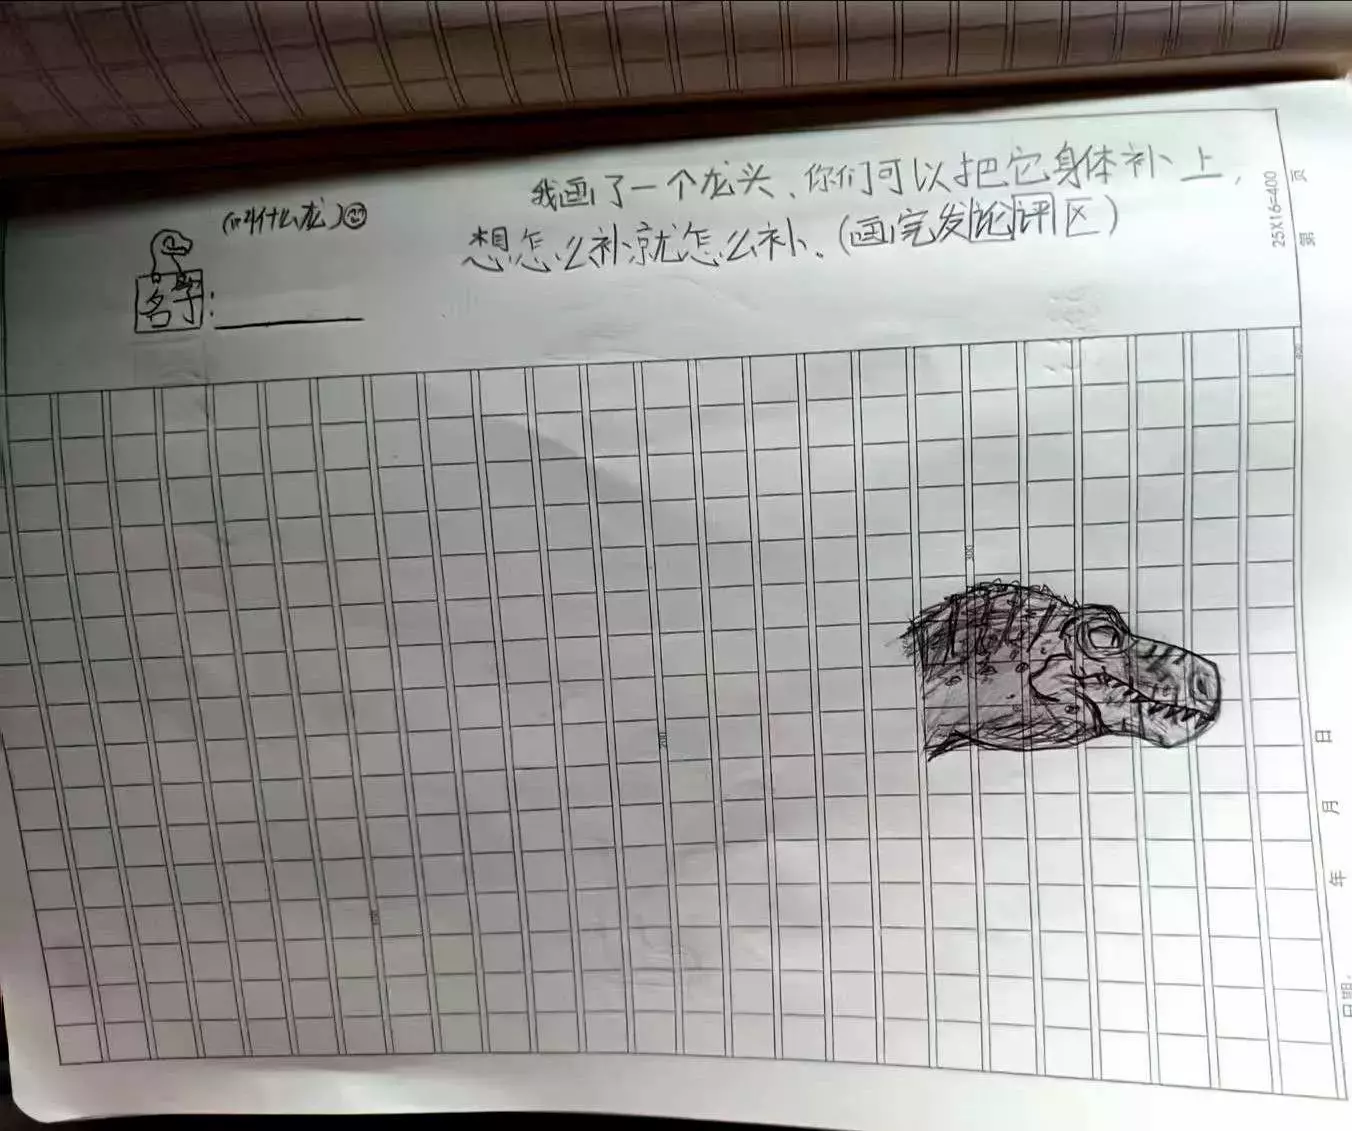 我画了一个龙头、你们可以把它身体补上，
想怎么补就怎么补。（画完发论评区）
（叫什么龙）
名字：
25X16=400
第 页
400
300
200
100
年 月 日
日期：